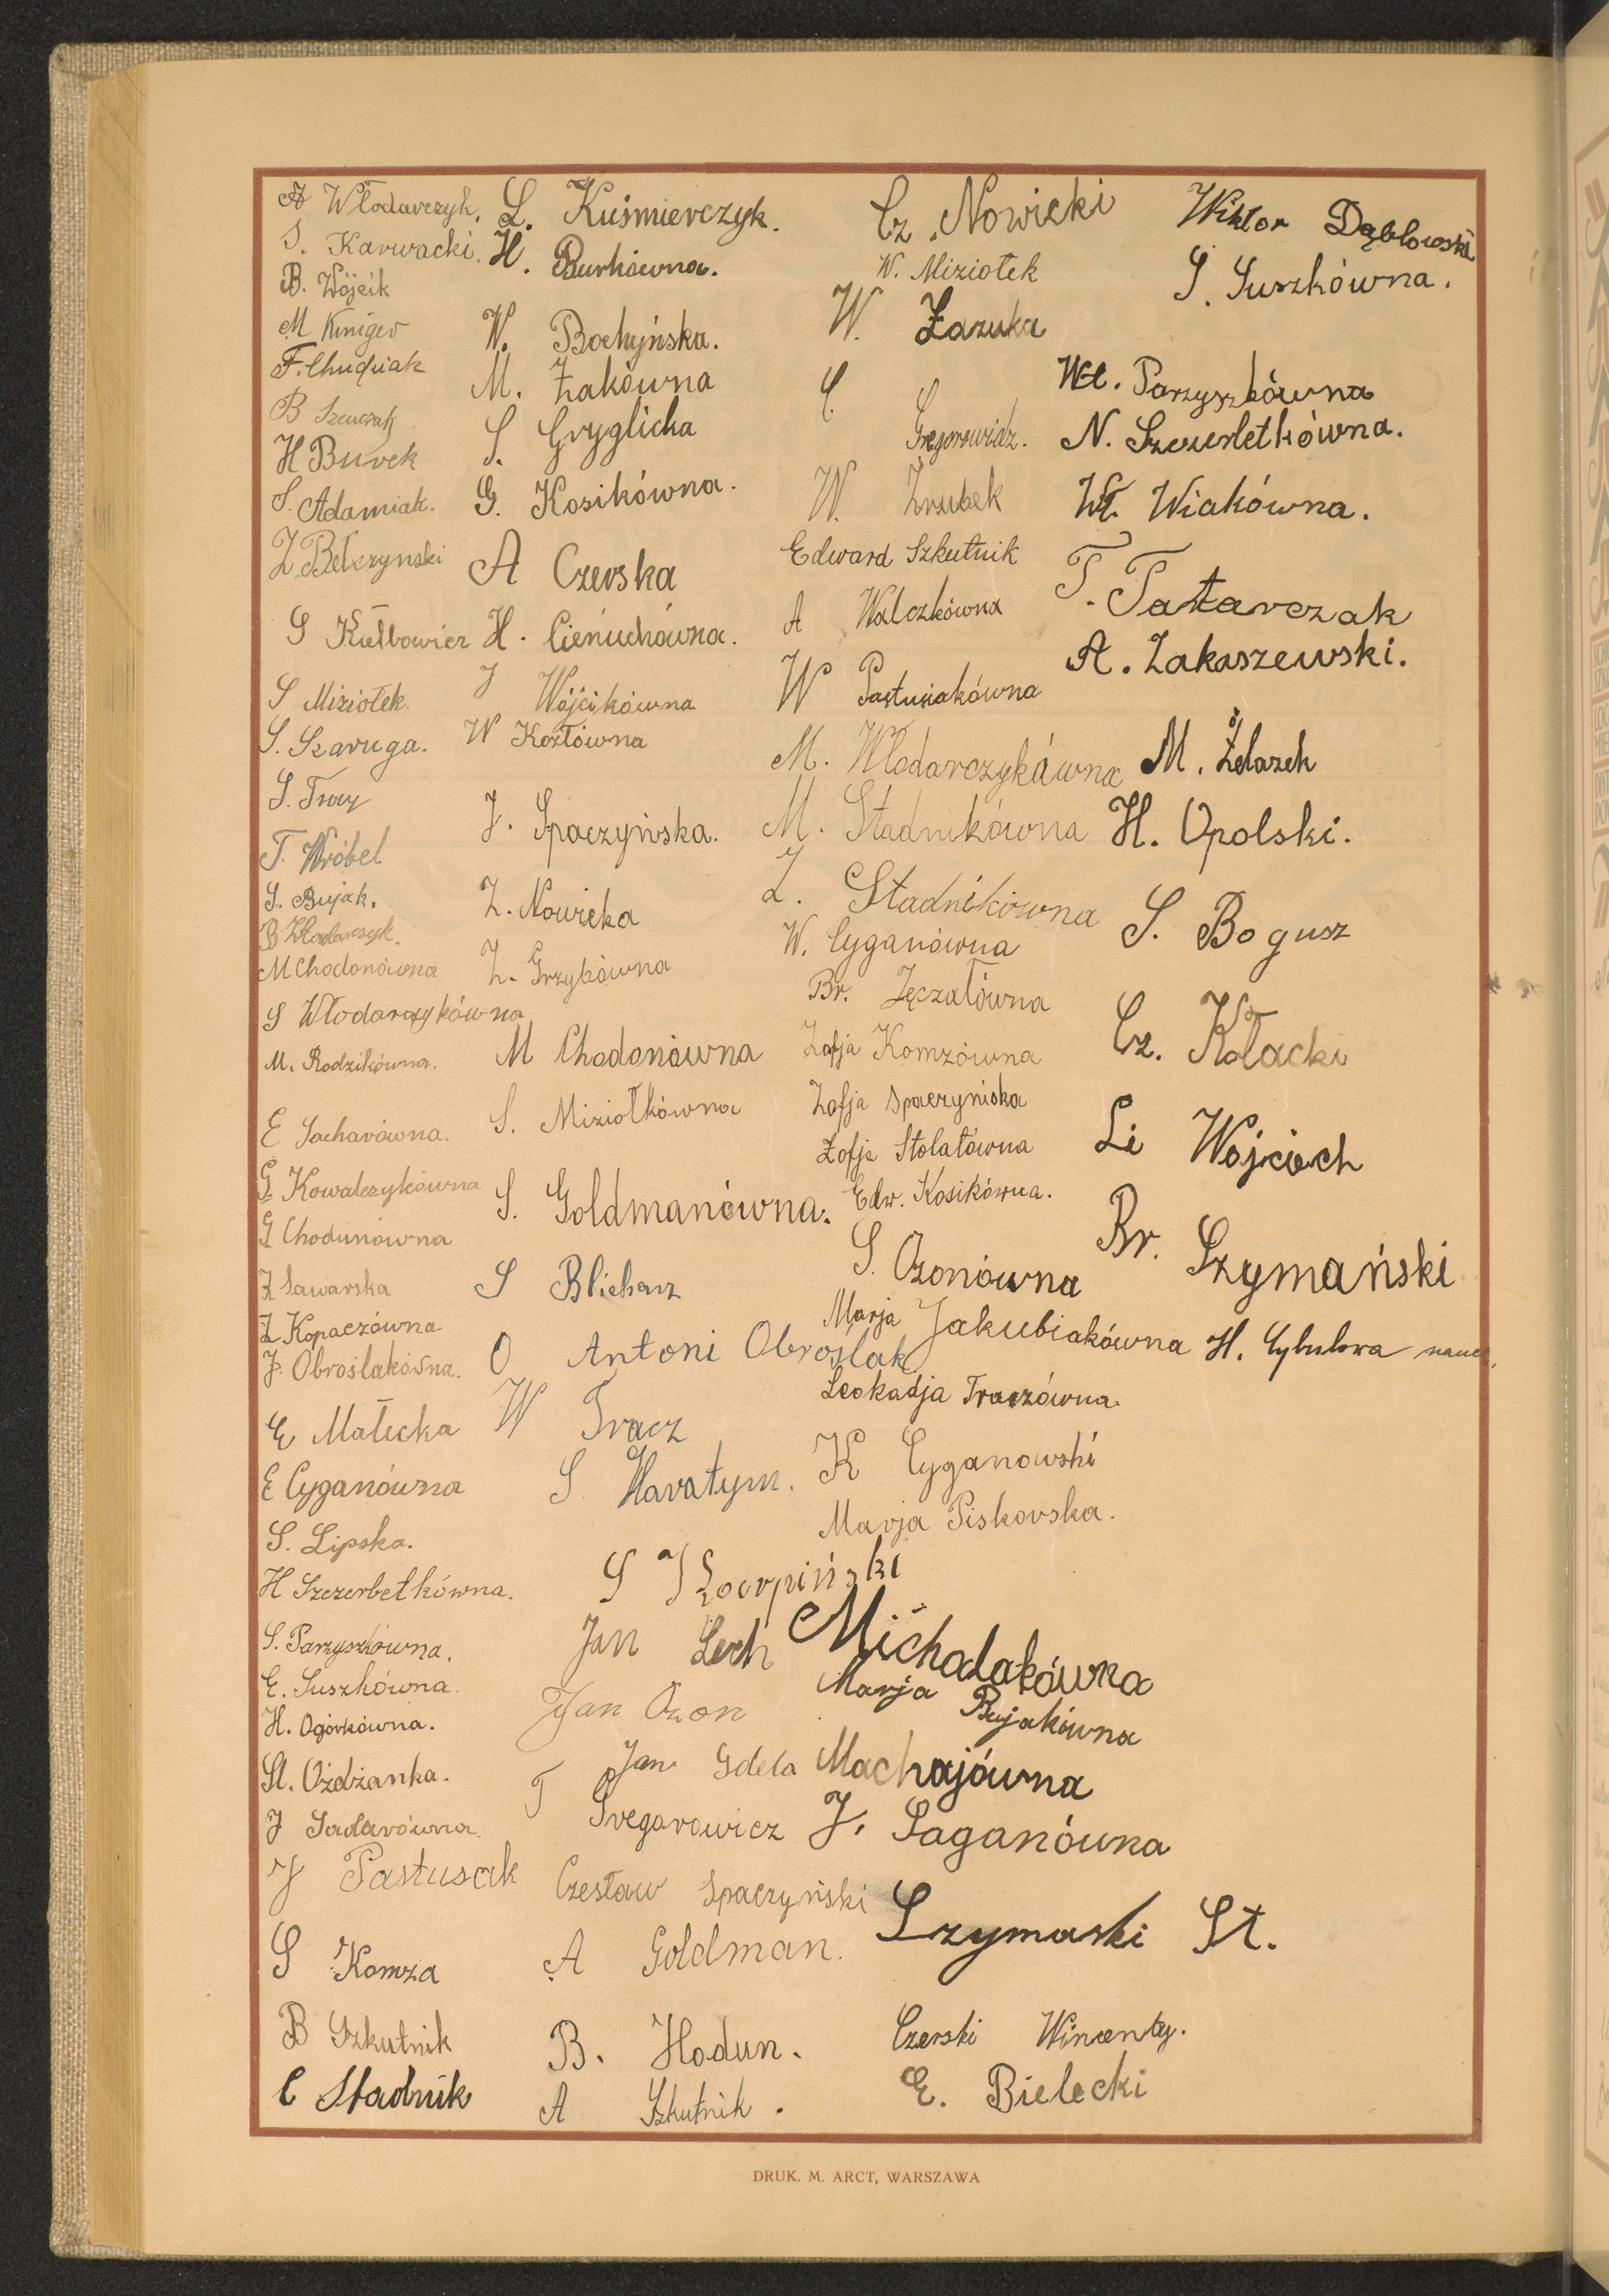 A Włodarczyk.
S. Karwacki.
B. Wójcik
M. Kiniger
F. Chudziak
B Szewczak
H Burek
S. Adamiak.
Z. Belczynski
S Kułbowicz
S Miziołek.
S. Szaruga.
S. Tracz
T. Wróbel
S. Bujak.
B Włodarczyk.
M Chodonówna
S Włodarczykówna
M. Rodzikówna.
E Sacharówna.
G Kowalczykówna
G Chodunówna
Z Sawarska
Z Kopaczówna
J. Obroślakówna.
E Małecka
E Cyganówna
S. Lipska.
H Szczerbetkówna.
S. Parzyszkówna.
E. Suszkówna.
H. Ogórkówna.
St. Oździanka.
J Sadarówna.
J Pastusak
S Komza
B Szkutnik
C Stadnik
L. Kuśmierczyk.
H. Burkówna.
W. Bochyńska.
M. Żakówna
S. Gryglicka
G. Kosikówna.
A Czerska
H. Cieńuchówna.
J Wójcikówna
W Kozłówna
J. Spaczyńska.
Z. Nowicka
Z. Grzybówna
M Chodonówna
S. Miziołkówna
S. Goldmanówna.
S Blicharz
O Antoni Obroślak
W Tracz
S Haratym.
S Skoorpiński
Jan Lech
Jan Ozon
Jan Gdela
T Gregorowicz
Czesław Spaczyński
A Goldman.
B. Hodun.
A Szkutnik.
Cz. Nowicki
W. Miziołek
W. Zazuka
C. S Gregorowicz.
W. Zrzubek
Edward Szkutnik
A Walczkówna
W Pastusiakówna
M. Włodarczykówna
M. Stadnikówna
Z. Stadnikówna
W. Cyganówna
Br. Jęczałówna
Zofja Komzówna
Zofja Spaczyniska
Zofja Stolatówna
Edw. Kosikówna.
S. Ozonówna
Marja Jakubiakówna
Leokadja Traczówna.
K Cyganowski
Marja Piskorska.
Michalakówna
Marja Bujakówna
Machajówna
J. Saganówna
Szymaski St.
Czerski Wincenty.
E. Bielecki
Wiktor Dąbłowski
S. Suszkówna.
Wł. Parzyszkówna
N. Szczerbetkówna.
Wł. Wiakówna.
T. Tatarczak
A. Zakaszewski.
M. Żelazek
H. Opolski.
S. Bogusz
Cz. Kołacki
Li Wójcich
Br. Szymański
H. Cybulowa naucz.
DRUK. M. ARCT, WARSZAWA